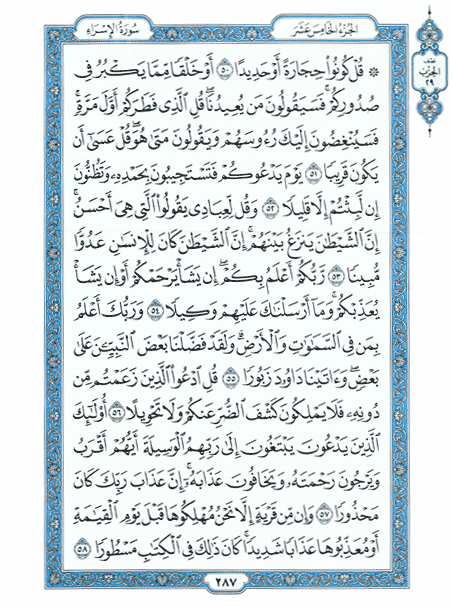 الجزء الخامس عشر
سورة الإسراء
نصف
الحزب
٢٩
۞ قُلْ كُونُوا۟ حِجَارَةً أَوْ حَدِيدًا ٥٠ أَوْ خَلْقًا مِّمَّا يَكْبُرُ فِى
صُدُورِكُمْ ۚ فَسَيَقُولُونَ مَن يُعِيدُنَا ۖ قُلِ ٱلَّذِى فَطَرَكُمْ أَوَّلَ مَرَّةٍ ۚ
فَسَيُنْغِضُونَ إِلَيْكَ رُءُوسَهُمْ وَيَقُولُونَ مَتَىٰ هُوَ ۖ قُلْ عَسَىٰٓ أَن
يَكُونَ قَرِيبًا ٥١ يَوْمَ يَدْعُوكُمْ فَتَسْتَجِيبُونَ بِحَمْدِهِۦ وَتَظُنُّونَ
إِن لَّبِثْتُمْ إِلَّا قَلِيلًا ٥٢ وَقُل لِّعِبَادِى يَقُولُوا۟ ٱلَّتِى هِىَ أَحْسَنُ ۚ
إِنَّ ٱلشَّيْطَـٰنَ يَنزَغُ بَيْنَهُمْ ۚ إِنَّ ٱلشَّيْطَـٰنَ كَانَ لِلْإِنسَـٰنِ عَدُوًّا
مُّبِينًا ٥٣ رَّبُّكُمْ أَعْلَمُ بِكُمْ ۖ إِن يَشَأْ يَرْحَمْكُمْ أَوْ إِن يَشَأْ
يُعَذِّبْكُمْ ۚ وَمَآ أَرْسَلْنَـٰكَ عَلَيْهِمْ وَكِيلًا ٥٤ وَرَبُّكَ أَعْلَمُ
بِمَن فِى ٱلسَّمَـٰوَٰتِ وَٱلْأَرْضِ ۗ وَلَقَدْ فَضَّلْنَا بَعْضَ ٱلنَّبِيِّـۧنَ عَلَىٰ
بَعْضٍ ۖ وَءَاتَيْنَا دَاوُۥدَ زَبُورًا ٥٥ قُلِ ٱدْعُوا۟ ٱلَّذِينَ زَعَمْتُم مِّن
دُونِهِۦ فَلَا يَمْلِكُونَ كَشْفَ ٱلضُّرِّ عَنكُمْ وَلَا تَحْوِيلًا ٥٦ أُو۟لَـٰٓئِكَ
ٱلَّذِينَ يَدْعُونَ يَبْتَغُونَ إِلَىٰ رَبِّهِمُ ٱلْوَسِيلَةَ أَيُّهُمْ أَقْرَبُ
وَيَرْجُونَ رَحْمَتَهُۥ وَيَخَافُونَ عَذَابَهُۥٓ ۚ إِنَّ عَذَابَ رَبِّكَ كَانَ
مَحْذُورًا ٥٧ وَإِن مِّن قَرْيَةٍ إِلَّا نَحْنُ مُهْلِكُوهَا قَبْلَ يَوْمِ ٱلْقِيَـٰمَةِ
أَوْ مُعَذِّبُوهَا عَذَابًا شَدِيدًا ۚ كَانَ ذَٰلِكَ فِى ٱلْكِتَـٰبِ مَسْطُورًا ٥٨
٢٨٧